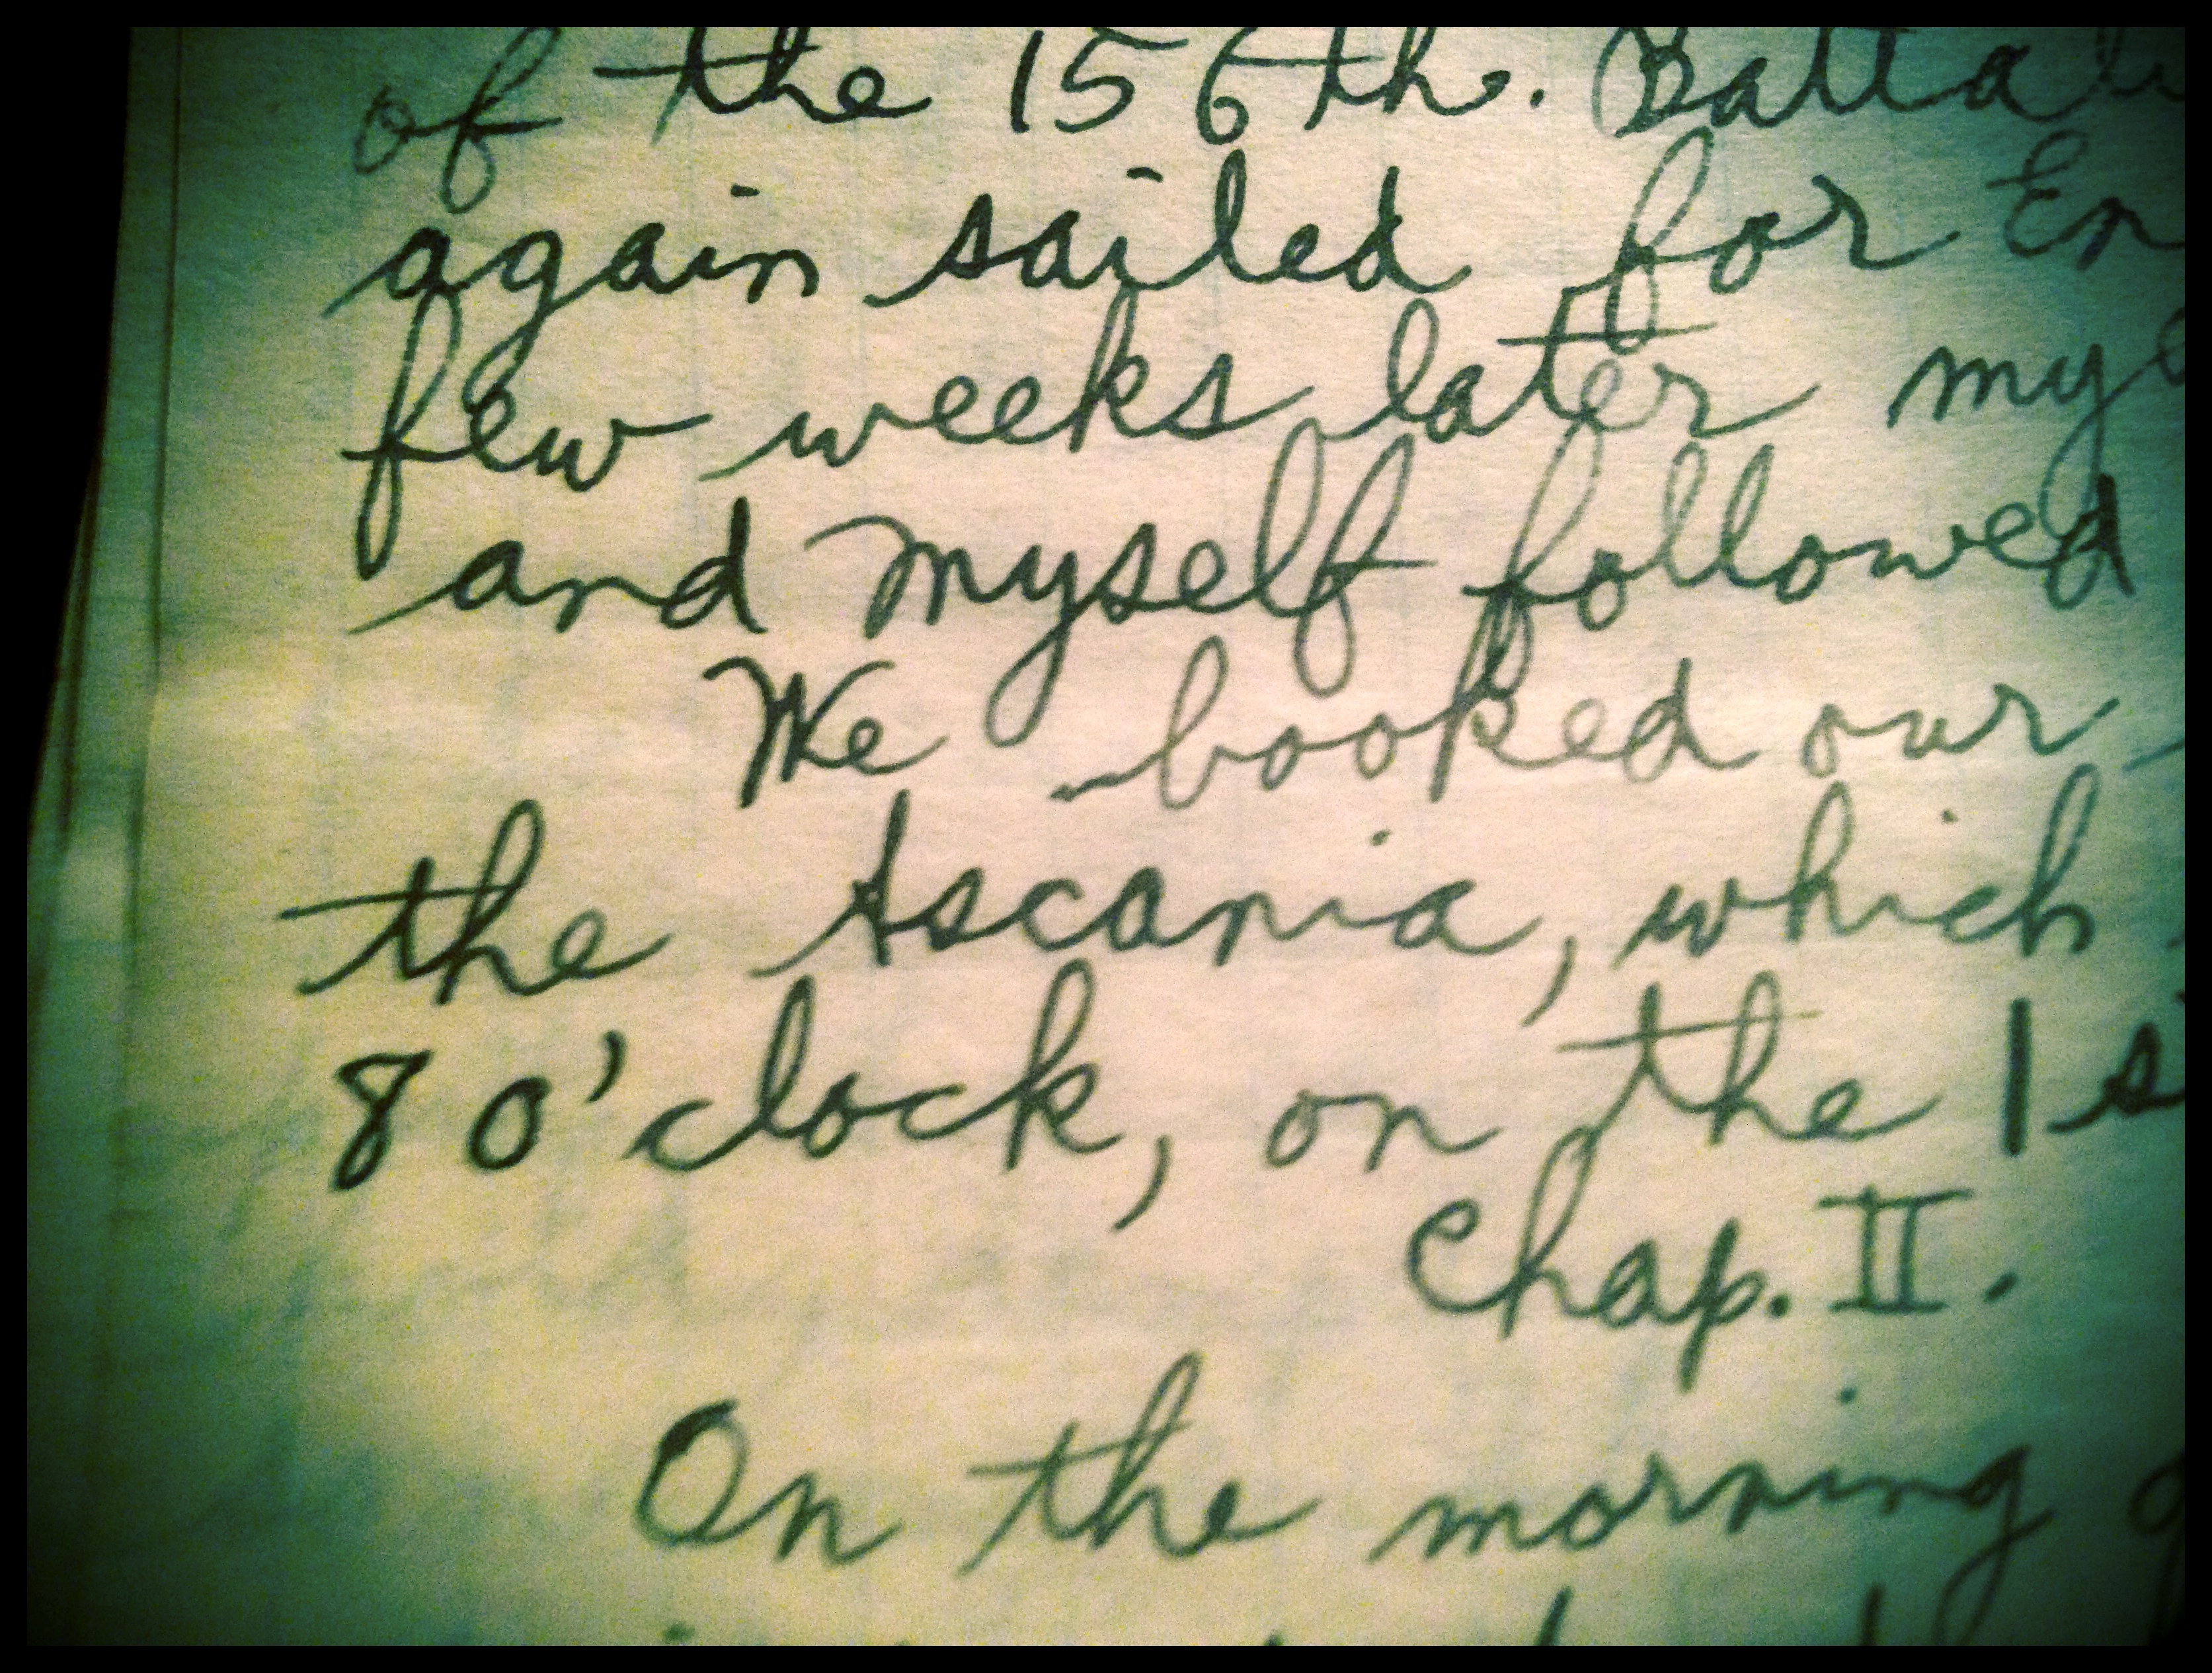 of the 156th. Battali
again sailed for En
few weeks later my
and myself followed
We booked our
the Ascania, which
8 o'clock, on the 1s
Chap. II.
On the morning